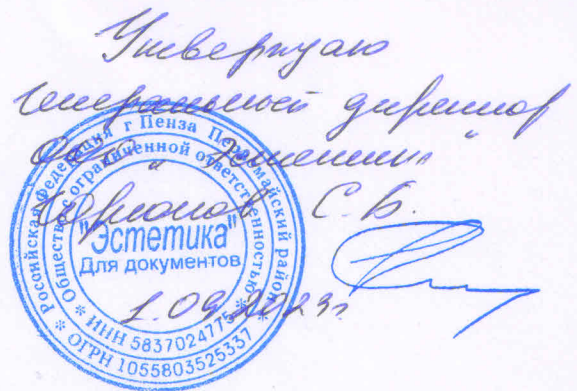 Утверждаю
Генеральный директор
ООО "Эстетика"
С.Б.
Российская Федерация г Пенза Первомайский район
Общество с ограниченной ответственностью
"Эстетика"
Для документов
1.09.2023г
ИНН 5837024775
ОГРН 1055803525337